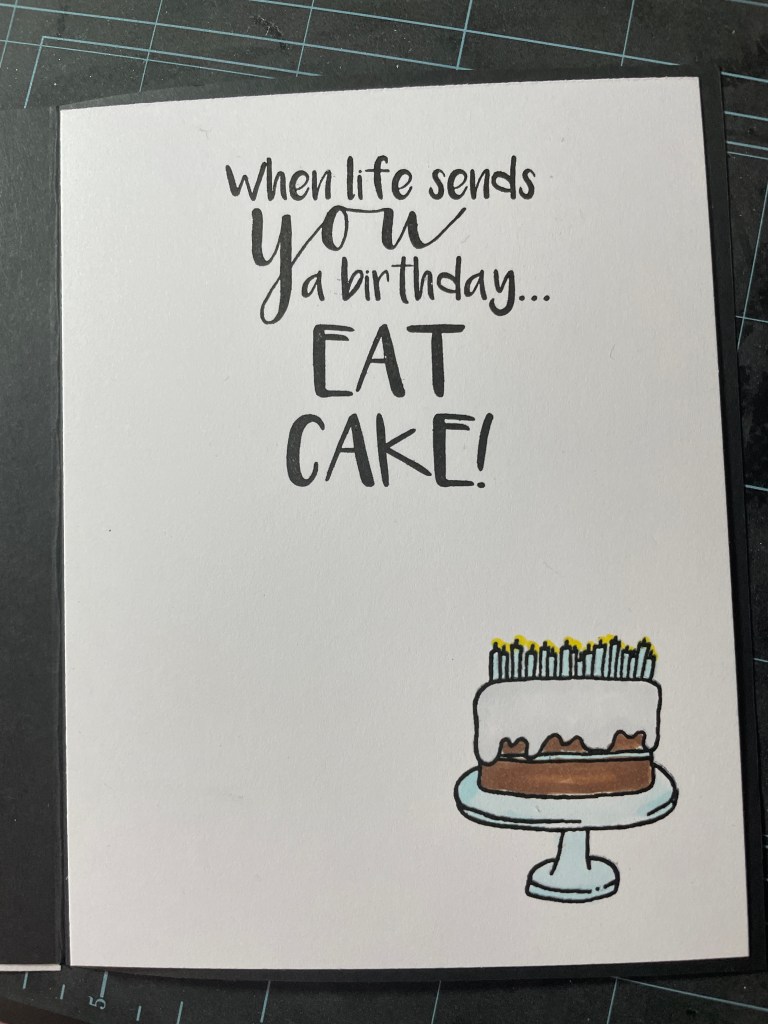 When life sends
you
a birthday...
EAT
CAKE!
5